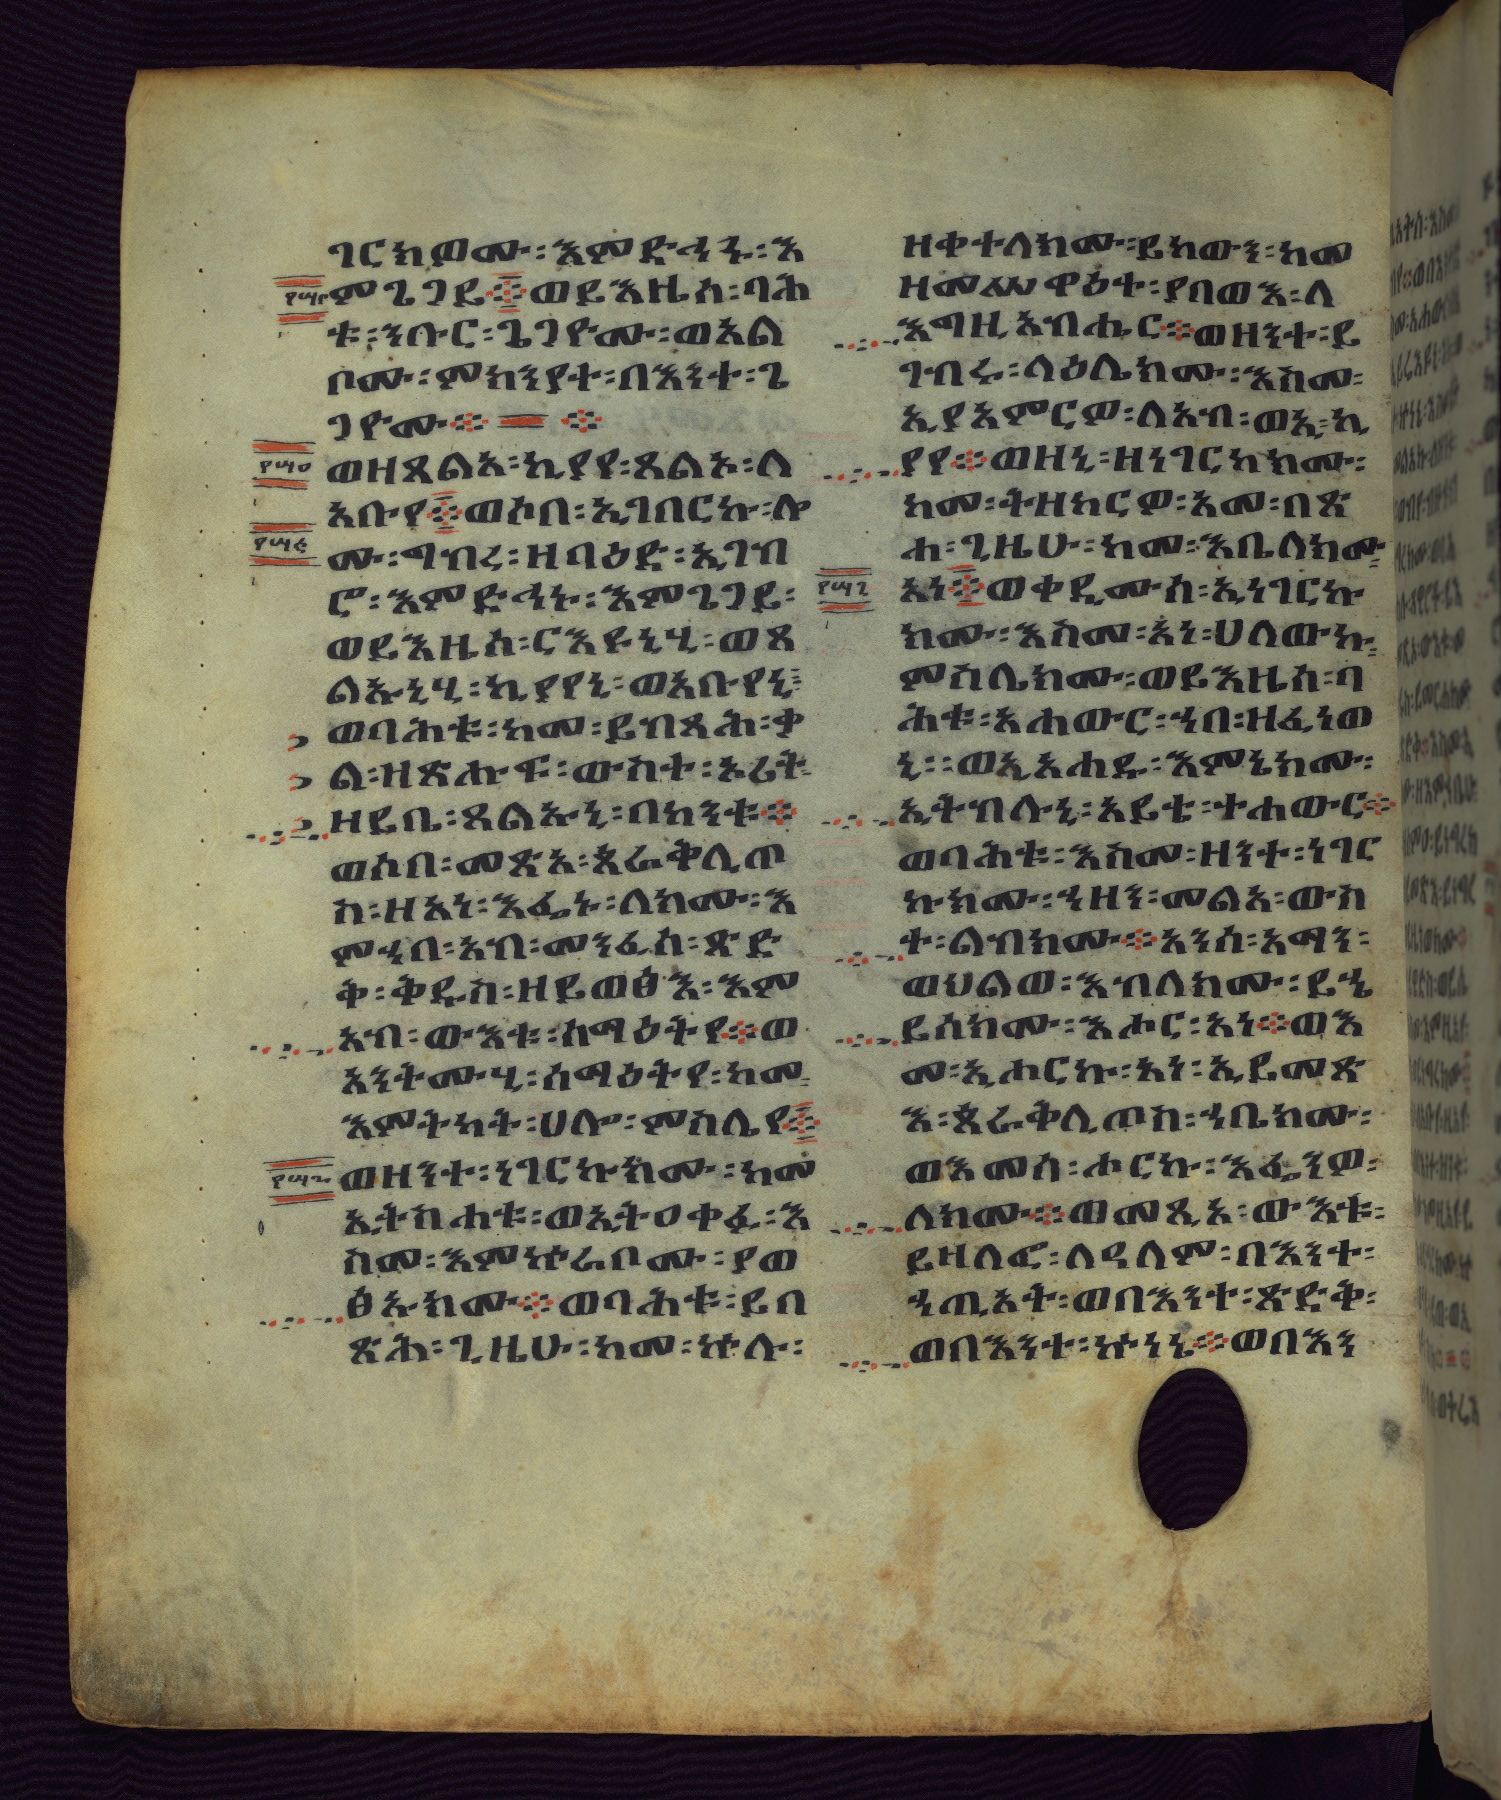 ገርክዎሙ፡ እምድኅሩ፡ እ
ምጌጋይ፨ ወይእዜሰ፡ ባሕ
ቱ፡ ነጹር፡ ጌጋዮሙ፡ ወአል
ቦሙ፡ ምክንያተ፡ በእንተ፡ ጌ
ጋዮሙ፨ ፨
ወዘጸልአ፡ ኪያየ፡ ጸልኦ፡ ለ
አቡየ፨ ወሶበ፡ ኢገበርኩ፡ ሎ
ሙ፡ ግብረ፡ ዘባዕድ፡ ኢገብ
ሮ፡ እምድኅኑ፡ እምጌጋይ፡
ወይእዜሰ፡ ርእዩኒሂ፡ ወጸ
ልኡኒሂ፡ ኪያየኒ፡ ወአቡየኒ፡
ወባሕቱ፡ ከመ፡ ይብጻሕ፡ ቃ
ል፡ ዘጽሑፍ፡ ውስተ፡ ኦሪት፡
ዘይቤ፡ ጸልኡኒ፡ በከንቱ፨
ወሶበ፡ መጽአ፡ ጰራቅሊጦ
ስ፡ ዘአነ፡ እፌኑ፡ ለክሙ፡ እ
ምኀበ፡ አብ፡ መንፈስ፡ ጽድ
ቅ፡ ቅዱስ፡ ዘይወፅእ፡ እም
አብ፡ ውእቱ፡ ሰማዕትየ፨ ወ
አንትሙሂ፡ ሰማዕትየ፡ ከመ፡
እምትካት፡ ሀሎ፡ ምስሌየ፨
ወዘንተ፡ ነገርኩክሙ፡ ከመ
ኢትክሐቱ፡ ወኢትዐቀፉ፡ እ
ስመ፡ እምኵራቦሙ፡ ያወ
ፅኡክሙ፨ ወባሕቱ፡ ይበ
ጽሕ፡ ጊዜሁ፡ ከመ፡ ኵሉ፡
ዘቀተለክሙ፡ ይከውን፡ ከመ
ዘመሥዋዕተ፡ ያበወእ፡ ለ
እግዚአብሔር፨ ወዘንተ፡ ይ
ገብሩ፡ ላዕሌክሙ፡ እስመ፡
ኢያአምርዎ፡ ለአብ፡ ወኢ፡ ኪ
ያየ፨ ወዘኒ፡ ዘነገርኩክሙ፡
ከመ፡ ትዘከርዎ፡ አመ፡ በጽ
ሐ፡ ጊዜሁ፡ ከመ፡ እቤለክሙ፡
አነ፨ ወቀዲሙሰ፡ ኢነገርኩ
ክሙ፡ እስመ፡ አነ፡ ሀለውኩ፡
ምስሌክሙ፡ ወይእዜሰ፡ ባ
ሕቱ፡ አሐውር፡ ኀበ፡ ዘፈነወ
ኒ፡፡ ወኢአሐዱ፡ እምኔክሙ፡
ኢትብሉኒ፡ አይቴ፡ ተሐውር፨
ወባሕቱ፡ እስመ፡ ዘንተ፡ ነገር
ኩክሙ፡ ኀዘን፡ መልአ፡ ውስ
ተ፡ ልብክሙ፨ አንሰ፡ አማን፡
ወህልወ፡ እብለክሙ፡ ይኄ
ይሰክሙ፡ እሖር፡ አነ፨ ወእ
መ፡ ኢሖርኩ፡ አነ፡ ኢይመጽ
እ፡ ጰራቅሊጦስ፡ ኀቤክሙ፡
ወእመሰ፡ ሖርኩ፡ እፌንዎ፡
ለክሙ፨ ወመጺኦ፡ ውእቱ፡
ይዛለፎ፡ ለዓለም፡ በእንተ፡
ኀጢአት፡ ወበእንተ፡ ጽድቅ፡
ወበእንተ፡ ኵነኔ፨ ወበእን